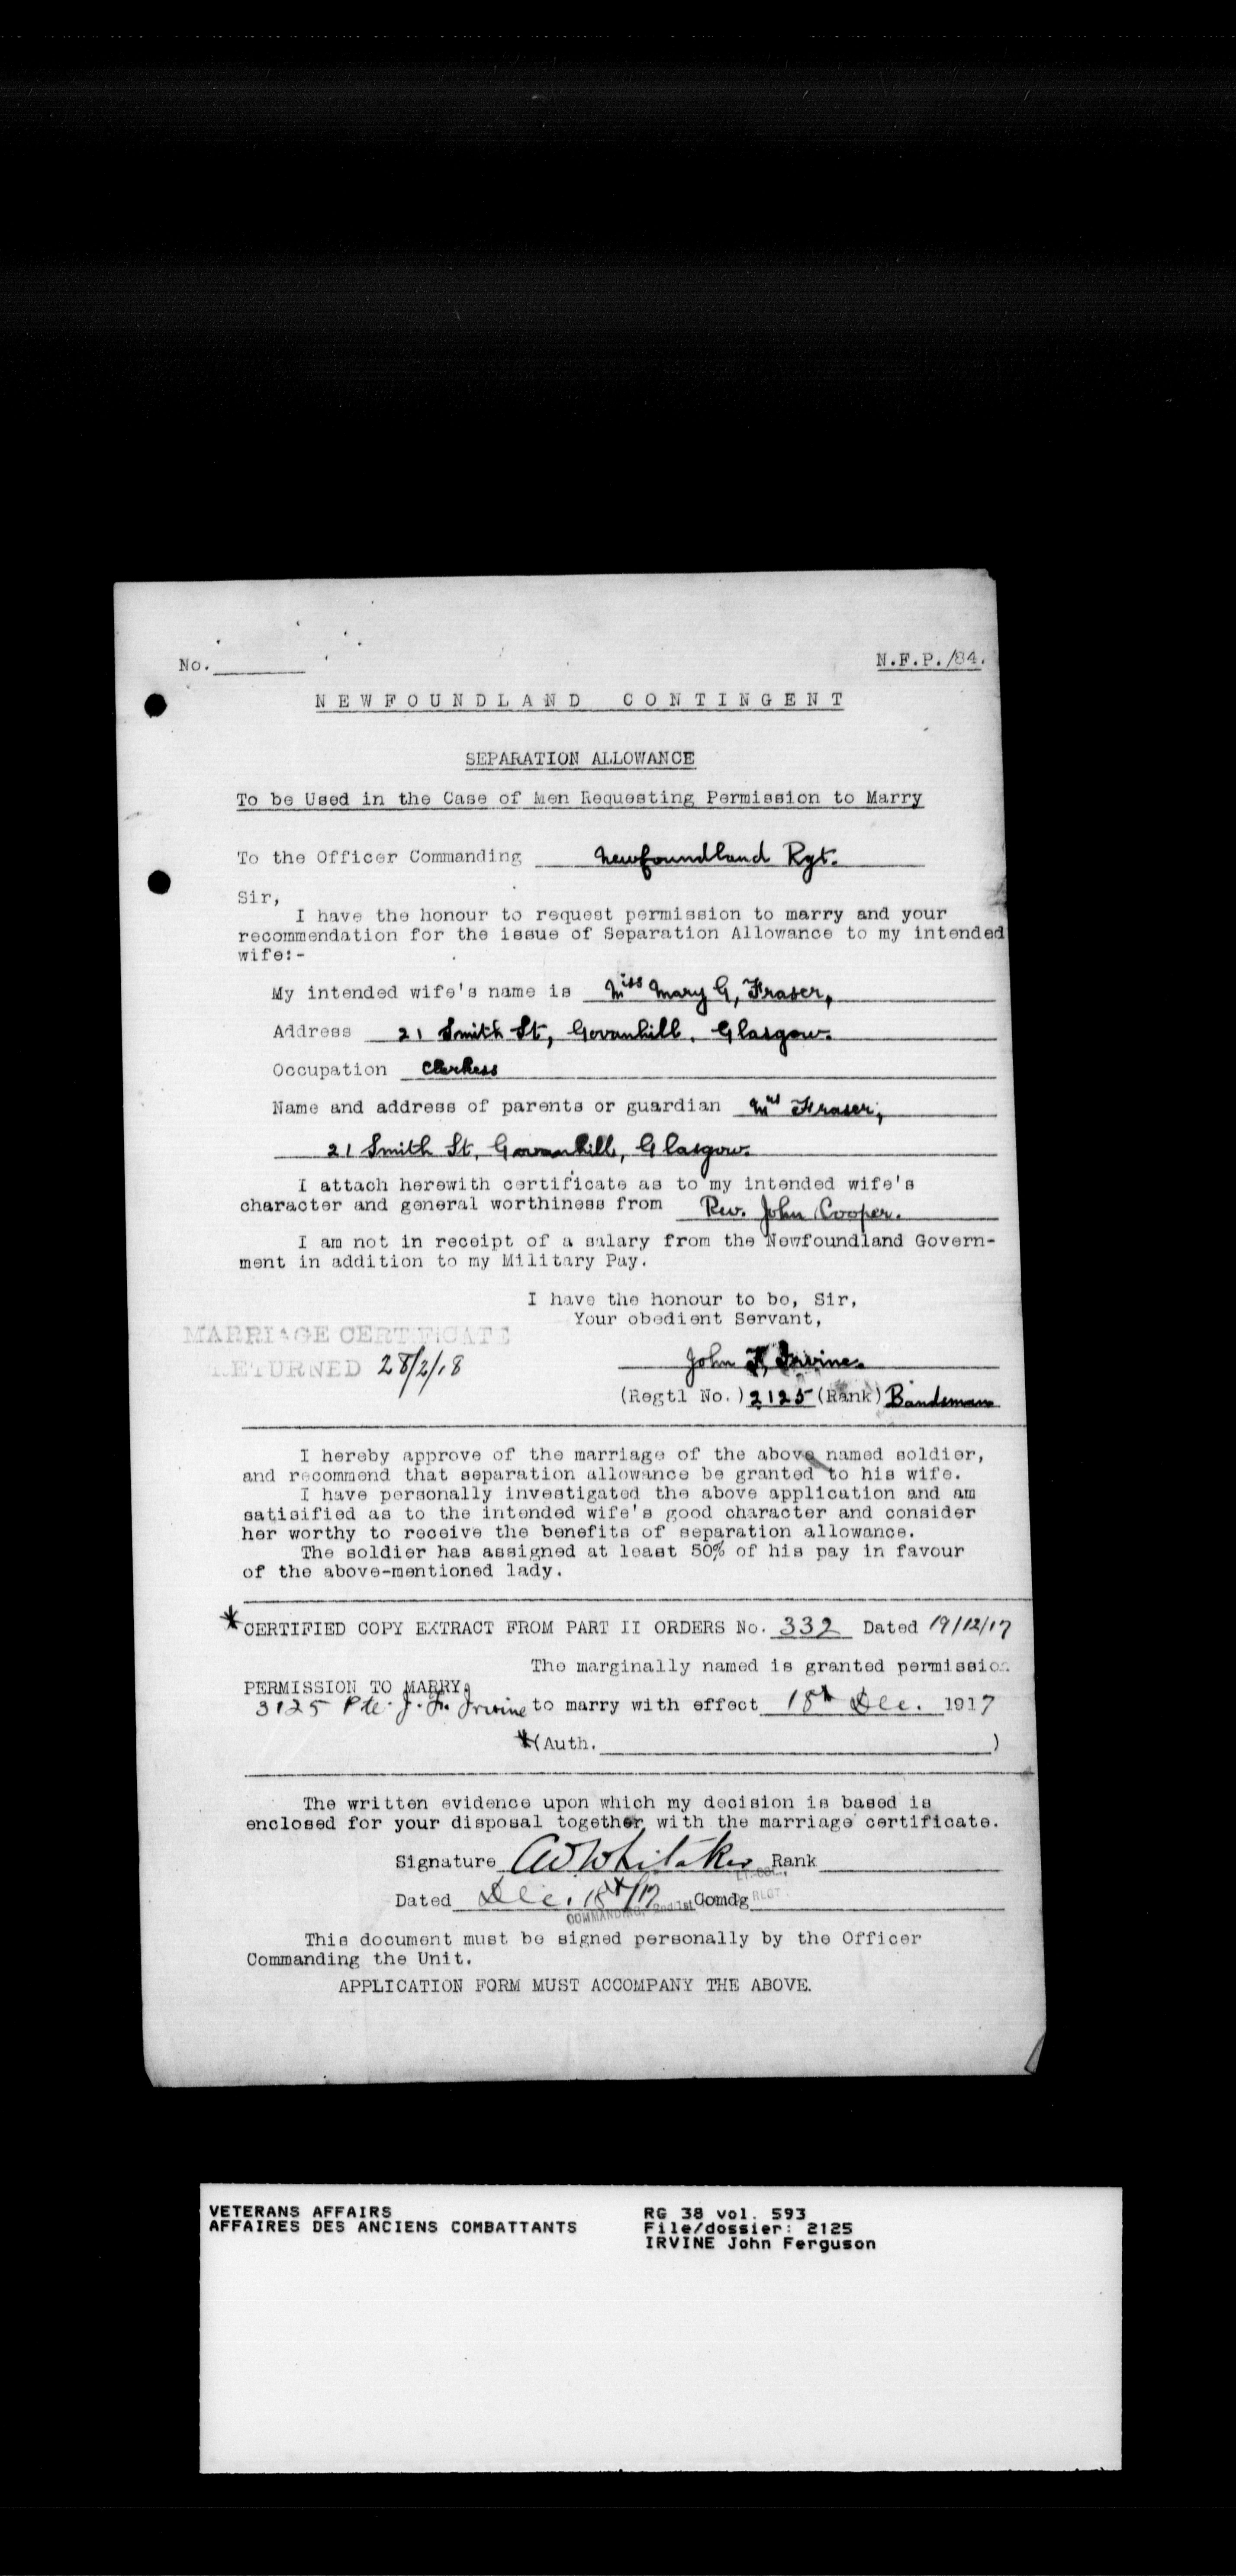 No.
N.F.P./84.
NEWFOUNDLAND CONTINGENT
SEPARATION ALLOWANCE
To be Used in the Case of Men Requesting Permission to Marry
To the Officer Commanding Newfoundland Rgt.
Sir,
I have the honour to request permission to marry and your
recommendation for the issue of Separation Allowance to my intended
wife:-
My intended wife's name is Miss Mary G, Fraser,
Address 21 Smith St, Govanhill, Glasgow.
Occupation Clerkess
Name and address of parents or guardian Mrs Fraser,
21 Smith St, Govanhill, Glasgow.
I attach herewith certificate as to my intended wife's
character and general worthiness from Rev. John Cooper.
I am not in receipt of a salary from the Newfoundland Govern-
ment in addition to my Military Pay.
I have the honour to be, Sir,
Your obedient Servant,
MARRIAGE CERTIFICATE
RETURNED 28/2/18
John F, Irvine.
(Regtl No.) 2125 (Rank) Bandsman
I hereby approve of the marriage of the above named soldier,
and recommend that separation allowance be granted to his wife.
I have personally investigated the above application and am
satisified as to the intended wife's good character and consider
her worthy to receive the benefits of separation allowance.
The soldier has assigned at least 50% of his pay in favour
of the above-mentioned lady.
*CERTIFIED COPY EXTRACT FROM PART II ORDERS No. 332 Dated 19/12/17
The marginally named is granted permission
PERMISSION TO MARRY.
3125 Pte. J. F. Irvine to marry with effect 18th Dec. 1917
*(Auth. )
The written evidence upon which my decision is based is
enclosed for your disposal together with the marriage certificate.
Signature CW Whitaker Rank
LT.-COL.,
Dated Dec. 18th/17 Comdg
COMMANDING, 2nd/1st RGT.
This document must be signed personally by the Officer
Commanding the Unit.
APPLICATION FORM MUST ACCOMPANY THE ABOVE.
VETERANS AFFAIRS
AFFAIRES DES ANCIENS COMBATTANTS
RG 38 vol. 593
File/dossier: 2125
IRVINE John Ferguson